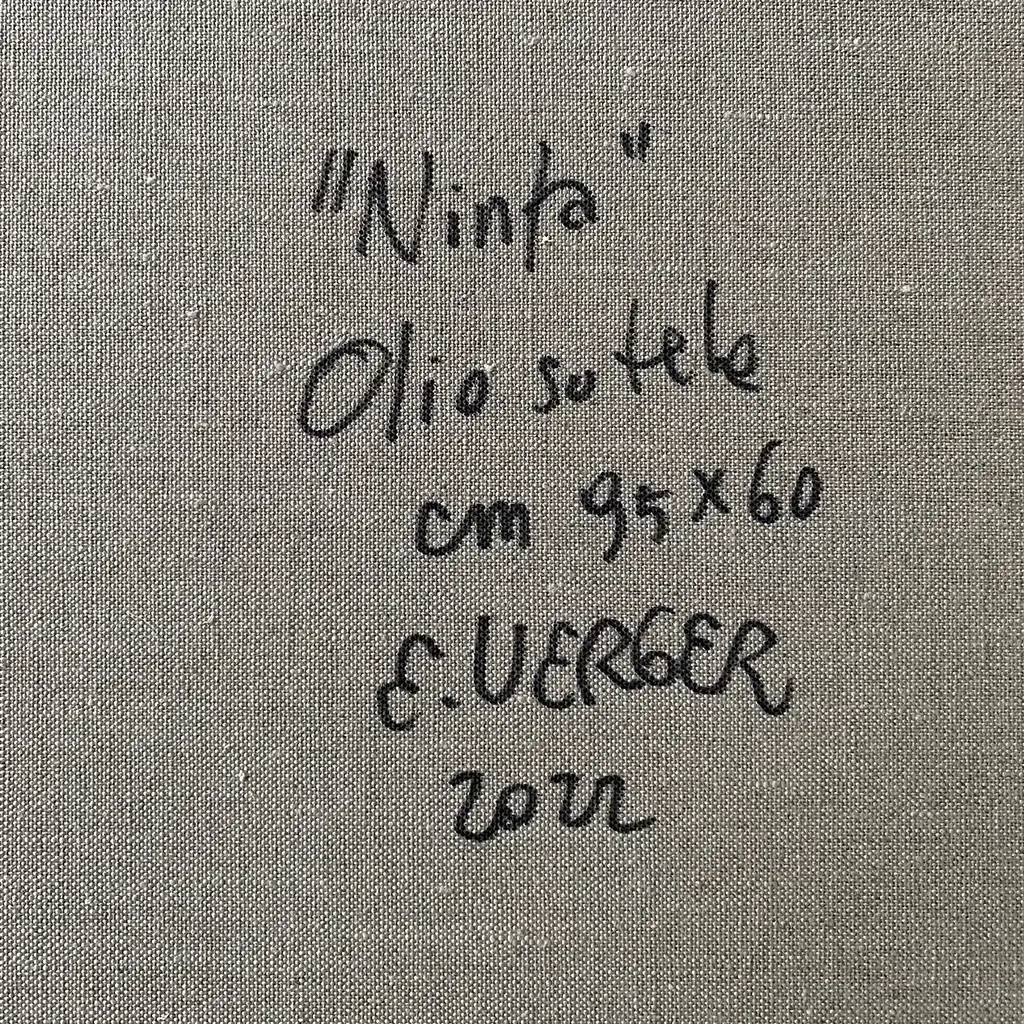 "Ninfa"
Olio su tela
cm 95x60
E.VERGER
2022